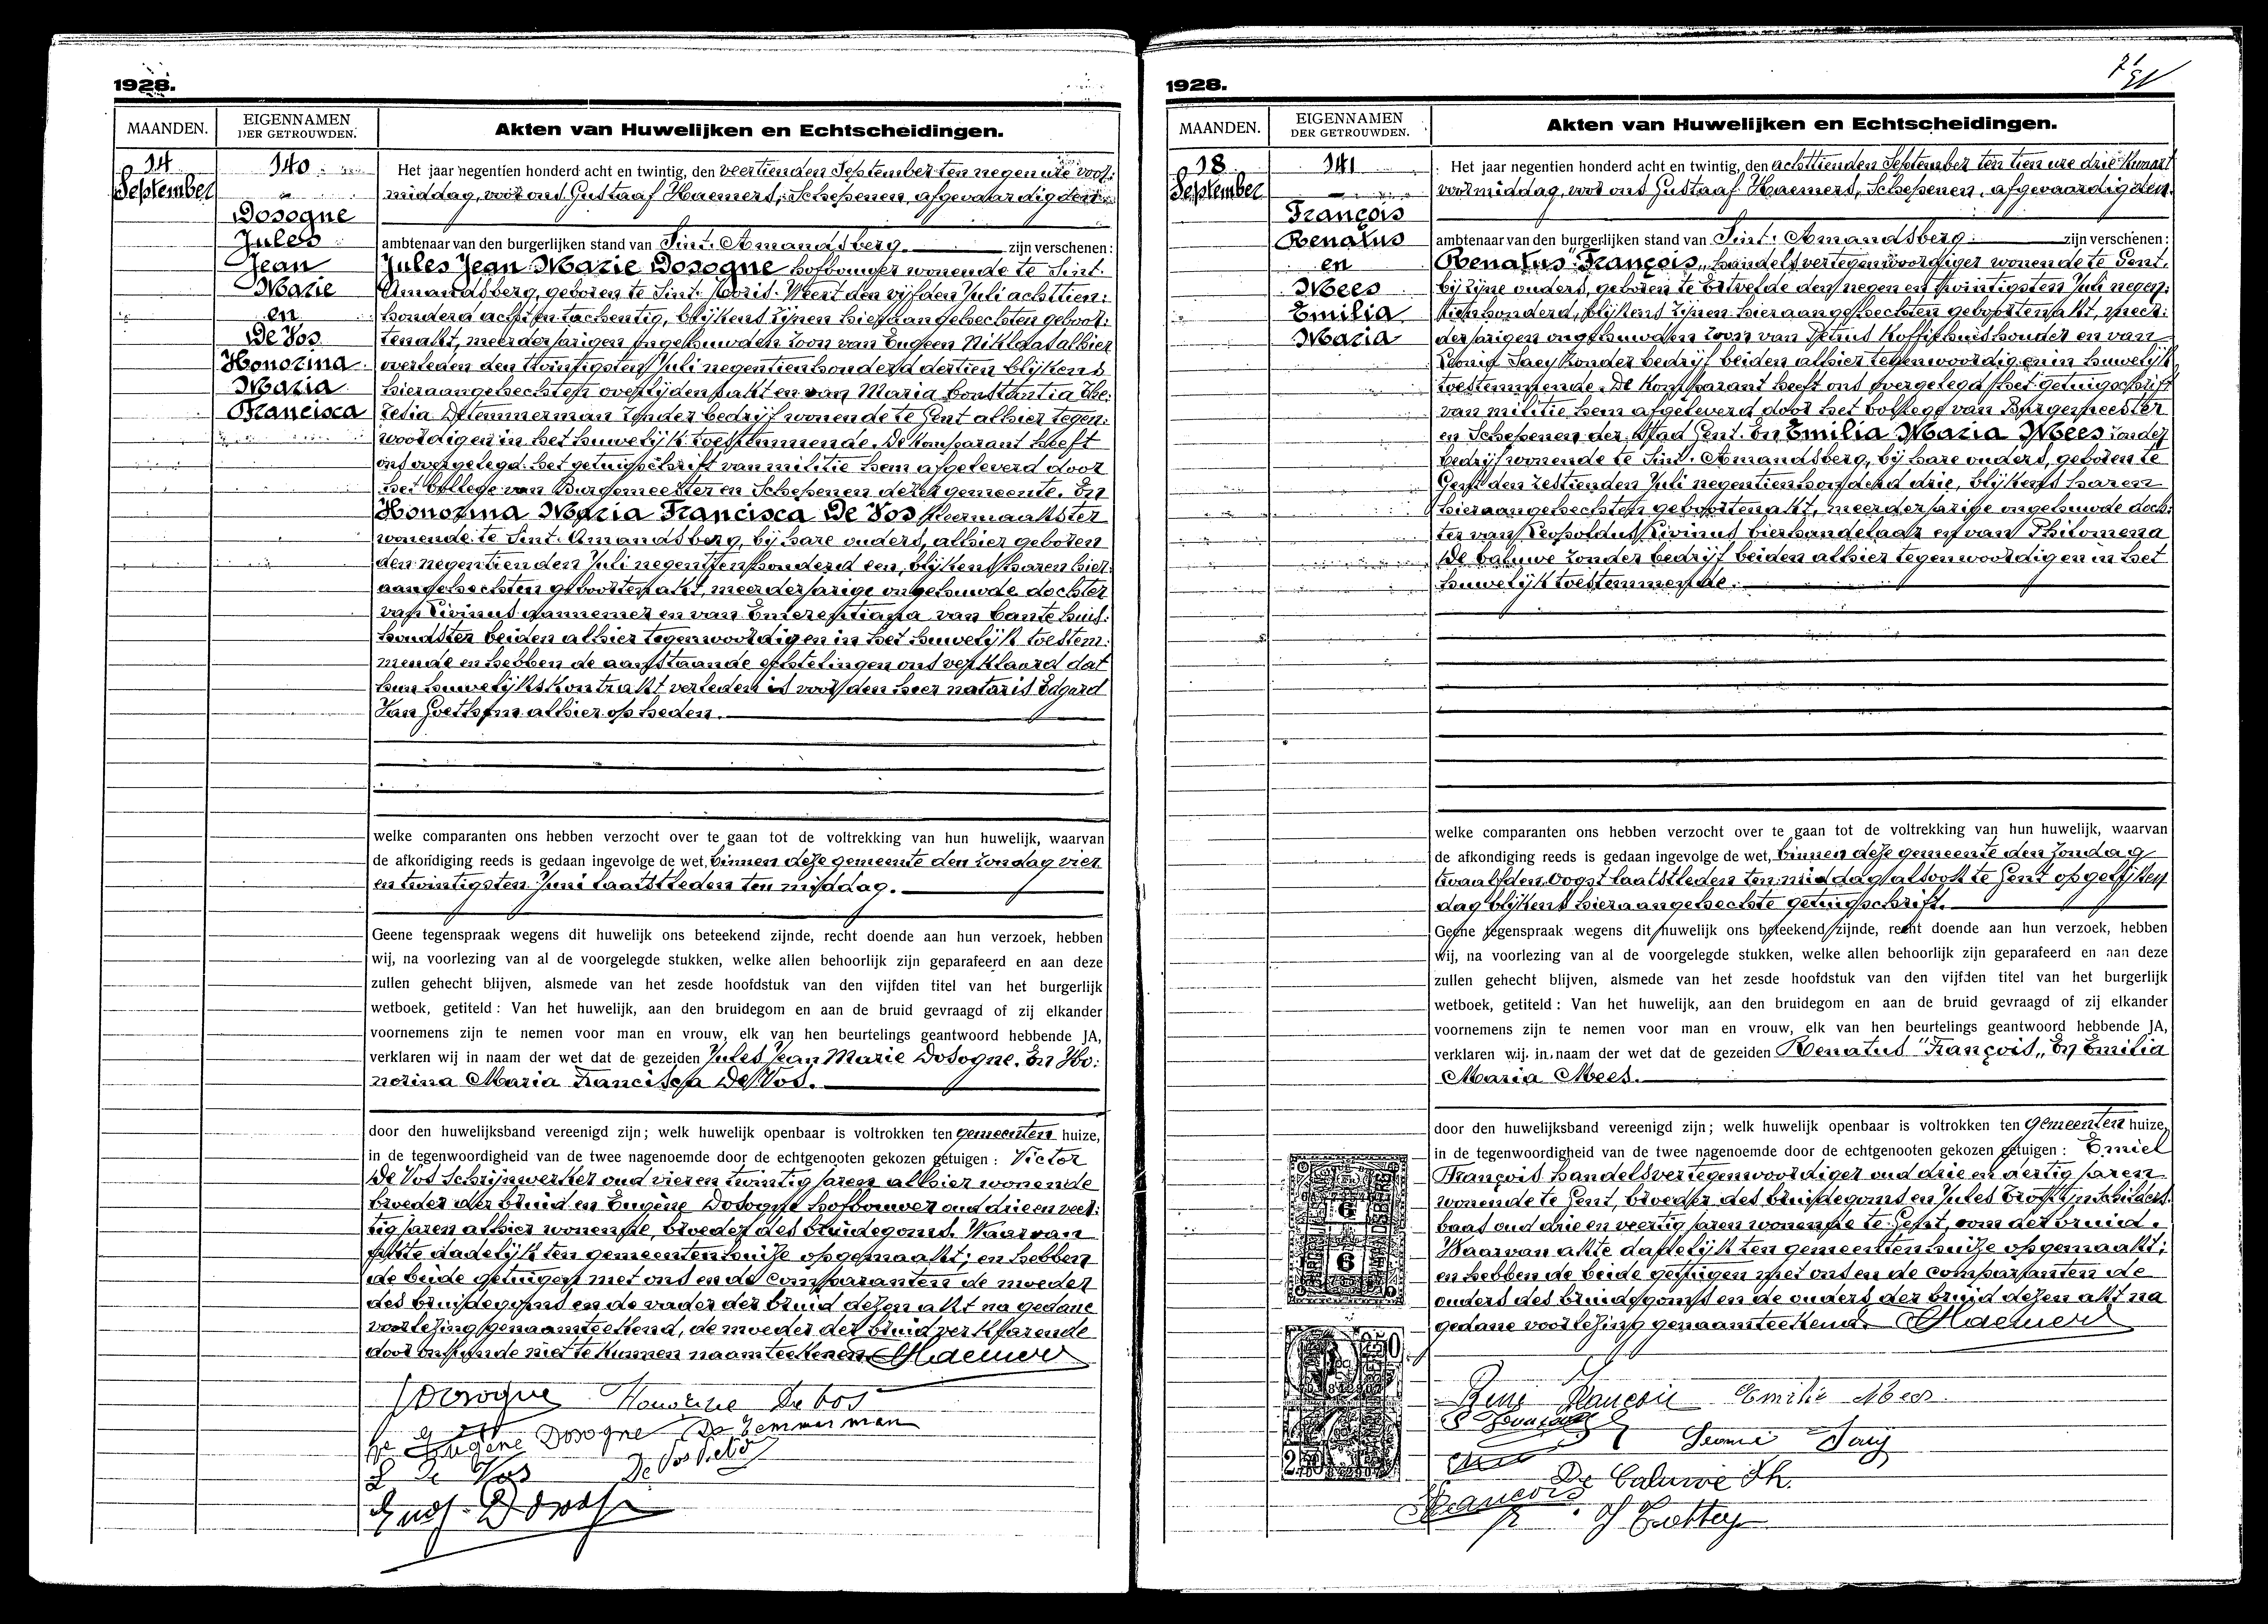 1928.
MAANDEN.
EIGENNAMEN
DER GETROUWDEN.
Akten van Huwelijken en Echtscheidingen.
14
September
140
Dosogne
Jules
Jean
Marie
en
De Vos
Honorina
Maria
Francisca
Het jaar negentien honderd acht en twintig, den veertienden September ten negen ure voor:
middag, voor ons Gustaaf Haemers, Schepenen, afgevaardigden
ambtenaar van den burgerlijken stand van Sint. Amandsberg. zijn verschenen:
Jules Jean Marie Dosogne hofbouwer wonende te Sint.
Amandsberg, geboren te Sint. Joris. Weert den vijfden Juli achttien:
honderd acht en tachentig, blijkens zijnen hieraangehechten geboor:
tenakt, meerderjarigen ongehuwden zoon van Eugeen Niklaas alhier
overleden den twintigsten Juli negentienhonderd dertien blijkens
hieraangehechten overlijdensakt en van Maria Constantia The:
resia Detemmerman zonder bedrijf wonende te Gent alhier tegen:
woordig en in het huwelijk toestemmende. De komparant heeft
ons overgelegd het getuigschrift van militie hem afgeleverd door
het College van Burgemeester en Schepenen dezer gemeente. En
Honorina Maria Francisca De Vos kleermaakster
wonende te Sint. Amandsberg, bij hare ouders, alhier geboren
den negentienden Juli negentienhonderd een, blijkens haren hier:
aangehechten geboortenakt, meerderjarige ongehuwde dochter
van Livinus aannemer en van Emerentiana van Cante huis:
houdster beiden alhier tegenwoordig en in het huwelijk toestem:
mende en hebben de aanstaande echtelingen ons verklaard dat
hun huwelijkskontrakt verleden is voor den heer notaris Edgard
Van Goethem alhier op heden.
welke comparanten ons hebben verzocht over te gaan tot de voltrekking van hun huwelijk, waarvan
de afkondiging reeds is gedaan ingevolge de wet, binnen deze gemeente den zondag vier
en twintigsten Juni laatstleden ten middag.
Geene tegenspraak wegens dit huwelijk ons beteekend zijnde, recht doende aan hun verzoek, hebben
wij, na voorlezing van al de voorgelegde stukken, welke allen behoorlijk zijn geparafeerd en aan deze
zullen gehecht blijven, alsmede van het zesde hoofdstuk van den vijfden titel van het burgerlijk
wetboek, getiteld : Van het huwelijk, aan den bruidegom en aan de bruid gevraagd of zij elkander
voornemens zijn te nemen voor man en vrouw, elk van hen beurtelings geantwoord hebbende JA,
verklaren wij in naam der wet dat de gezeiden Jules Jean Marie Dosogne. En Ho:
norina Maria Francisca De Vos.
door den huwelijksband vereenigd zijn; welk huwelijk openbaar is voltrokken ten gemeenten huize,
in de tegenwoordigheid van de twee nagenoemde door de echtgenooten gekozen getuigen : Victor
De Vos Schrijnwerker oud vier en twintig jaren alhier wonende
broeder der bruid en Eugène Dosogne hofbouwer oud drie en veer:
tig jaren alhier wonende, broeder des bruidegoms. Waarvan
akte dadelijk ten gemeentenhuize opgemaakt; en hebben
de beide getuigen met ons en de comparanten de moeder
des bruidegoms en de vader der bruid dezen akt na gedane
voorlezing genaamteekend, de moeder der bruid verklarende
door onkunde niet te kunnen naamteekenen. GHaemers
JDosogne Honorine De Vos
Eugène Dosogne De Temmerman
L De Vos De Vos Victor
1928.
MAANDEN.
EIGENNAMEN
DER GETROUWDEN.
Akten van Huwelijken en Echtscheidingen.
18
September
141
François
Renatus
en
Mees
Emilia
Maria
Het jaar negentien honderd acht en twintig, den achttienden September ten tien ure drie kwart
voormiddag, voor ons Gustaaf Haemers, Schepenen, afgevaardigden
ambtenaar van den burgerlijken stand van Sint. Amandsberg. zijn verschenen:
Renatus "François" handelsvertegenwoordiger wonende te Gent.
bij zijne ouders, geboren te Ertvelde den negen en twintigsten Juli negen:
tienhonderd, blijkens zijnen hieraangehechten geboortenakt, meer:
derjarigen ongehuwden zoon van Petrus koffiehuishouder en van
Leonie Saey zonder bedrijf beiden alhier tegenwoordig en in huwelijk
toestemmende. De komparant heeft ons overgelegd het getuigschrift
van militie hem afgeleverd door het Collège van Burgemeester
en Schepenen der Stad Gent. En Emilia Maria Mees zonder
bedrijf wonende te Sint. Amandsberg, bij hare ouders, geboren te
Gent den zestienden Juli negentienhonderd drie, blijkens haren
hieraangehechten geboortenakt, meerderjarige ongehuwde doch:
ter van Leopoldus Livinus bierhandelaar en van Philomena
De Caluwe zonder bedrijf beiden alhier tegenwoordig en in het
huwelijk toestemmende.
welke comparanten ons hebben verzocht over te gaan tot de voltrekking van hun huwelijk, waarvan
de afkondiging reeds is gedaan ingevolge de wet, binnen deze gemeente den zondag
twaalfden Oogst laatstleden ten middag alsook te Gent op gelijken
dag blijkens hieraangehechte getuigschrift.
Geene tegenspraak wegens dit huwelijk ons beteekend zijnde, recht doende aan hun verzoek, hebben
wij, na voorlezing van al de voorgelegde stukken, welke allen behoorlijk zijn geparafeerd en aan deze
zullen gehecht blijven, alsmede van het zesde hoofdstuk van den vijfden titel van het burgerlijk
wetboek, getiteld : Van het huwelijk, aan den bruidegom en aan de bruid gevraagd of zij elkander
voornemens zijn te nemen voor man en vrouw, elk van hen beurtelings geantwoord hebbende JA,
verklaren wij in naam der wet dat de gezeiden Renatus "François" En Emilia
Maria Mees.
door den huwelijksband vereenigd zijn; welk huwelijk openbaar is voltrokken ten gemeenten huize,
in de tegenwoordigheid van de twee nagenoemde door de echtgenooten gekozen getuigen : Emiel
François handelsvertegenwoordiger oud drie en dertig jaren
wonende te Gent, broeder des bruidegoms en Jules schilders:
baas oud drie en veertig jaren wonende te Gent, oom der bruid.
Waarvan akte dadelijk ten gemeentenhuize opgemaakt;
en hebben de beide getuigen met ons en de comparanten de
ouders des bruidegoms en de ouders der bruid dezen akt na
gedane voorlezing genaamteekend. GHaemers
René François Emilie Mees
Leonie Saey
De Caluwé Ph.
François
6
6